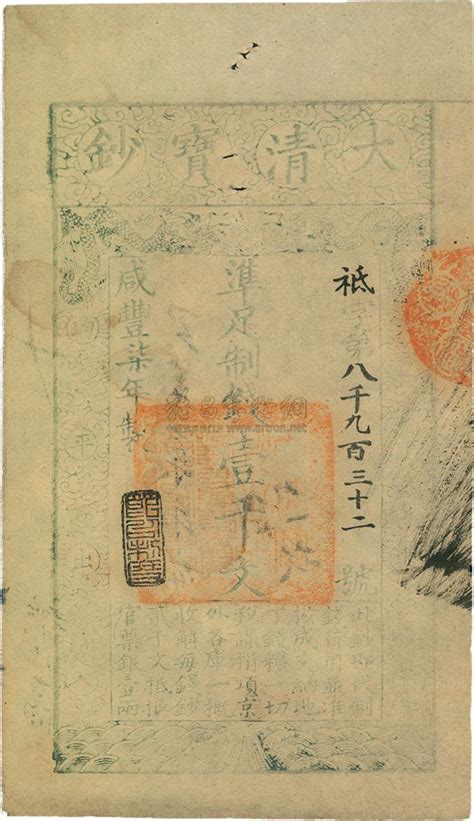 大清寶鈔
祗字第八千九百三十二號
準足制錢壹千文
咸豐柒年製
此鈔即代制
錢行用並准
按成交納地
丁錢糧一切
稅課捐項京
外各庫一概
收解每錢鈔
貳千文抵換
官票銀壹兩
www.artron.net